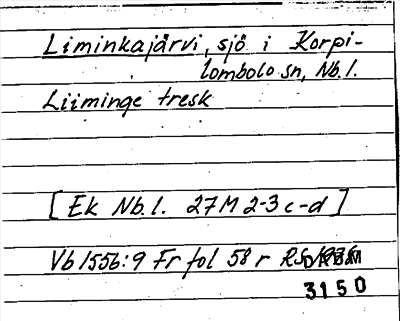 Liminkajärvi, sjö i Korpi-
lombolo sn, Nb. l.
Liiminge tresk
[Ek Nb. l. 27M 2-3 c-d]
Vb 1556:9 Fr fol 58 r
3150